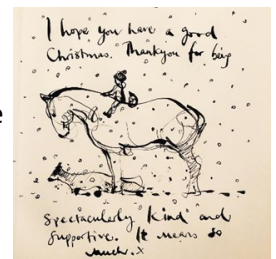 e
I hope you have a good
Christmas. Thankyou for being
spectacularly kind and
supportive. It means so
much. x